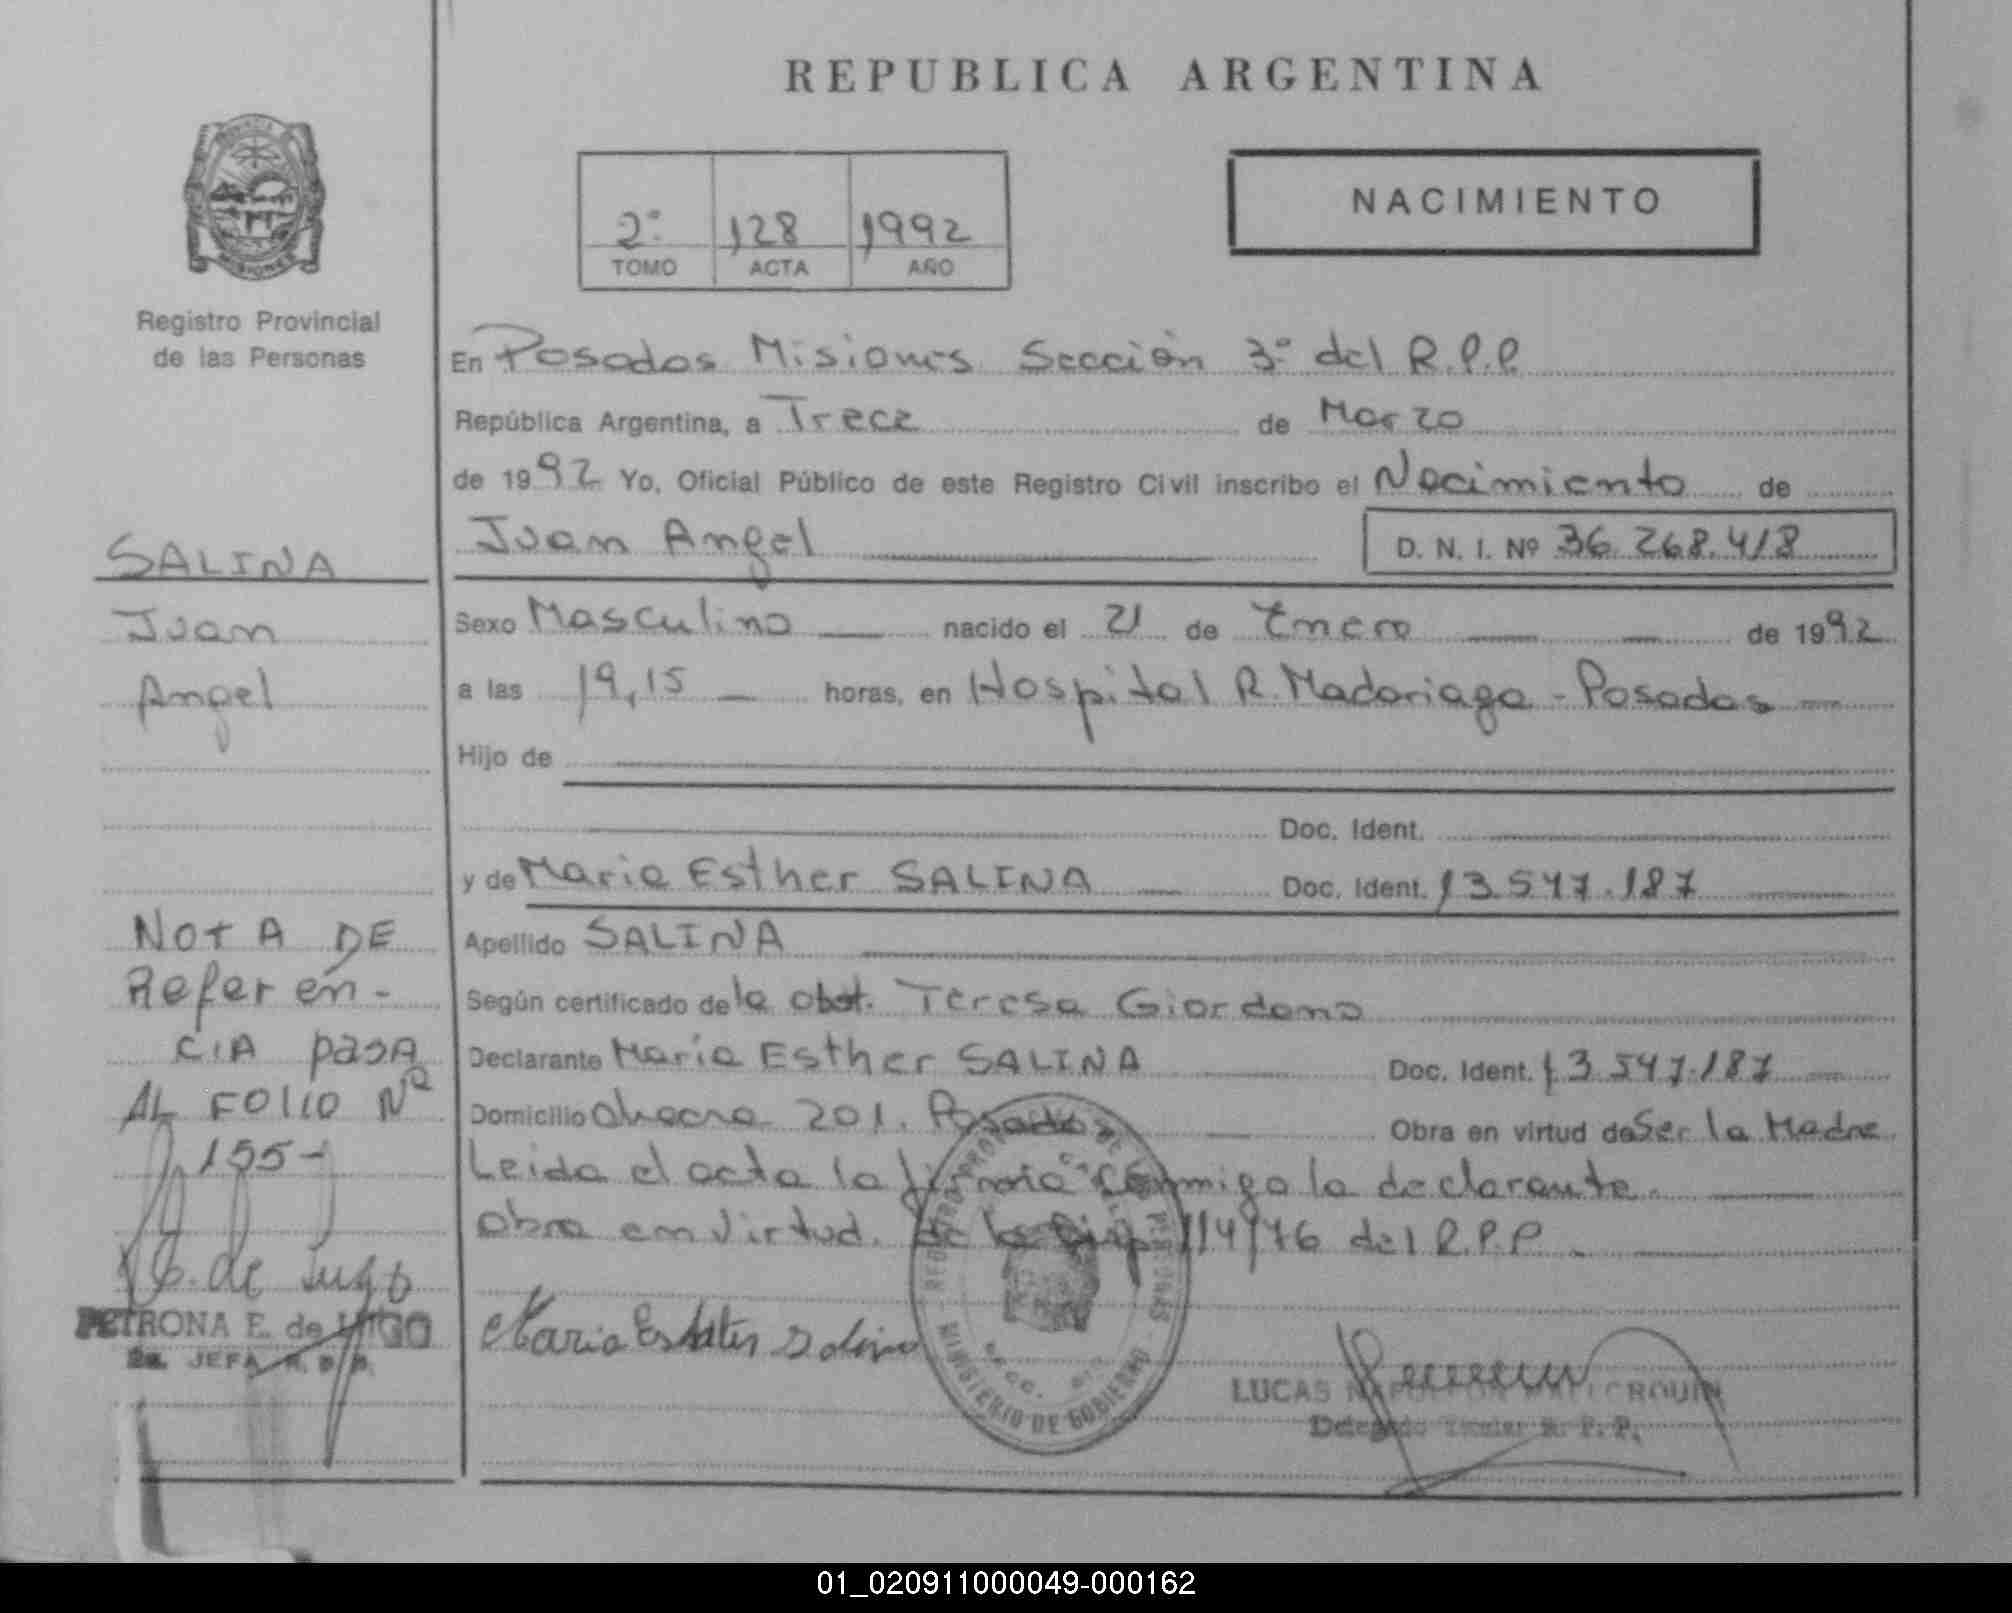 REPUBLICA ARGENTINA
PROVINCIA
MISIONES
2º 128 1992
TOMO ACTA AÑO
NACIMIENTO
Registro Provincial
de las Personas
En Posadas Misiones Sección 3º del R.P.P.
República Argentina, a Trece de Marzo
de 1992 Yo, Oficial Público de este Registro Civil inscribo el Nacimiento de
Juan Angel
D. N. I. Nº 36.268.418
SALINA
Juan
Angel
Sexo Masculino nacido el 21 de Enero de 1992
a las 19,15 horas, en Hospital R. Madariaga - Posadas
Hijo de
Doc. Ident.
y de Maria Esther SALINA Doc. Ident. 13.547.187
Apellido SALINA
Según certificado de la obst. Teresa Giordano
Declarante Maria Esther SALINA Doc. Ident. 13.547.187
Domicilio Chacra 201. Posadas Obra en virtud de Ser la Madre
Leida el acta la firma conmigo la declarante.
obra en virtud. de la 114/76 del R.P.P.
NOTA DE
Referen-
CIA pasa
AL FOLIO Nº
155-
P. E. de Lugo
PETRONA E. de LUGO
2a. JEFA R. P. P.
Maria Esther Salina
MINISTERIO DE GOBIERNO
LUCAS NAPOLEON
Delegado Titular R. P. P.
01_020911000049-000162